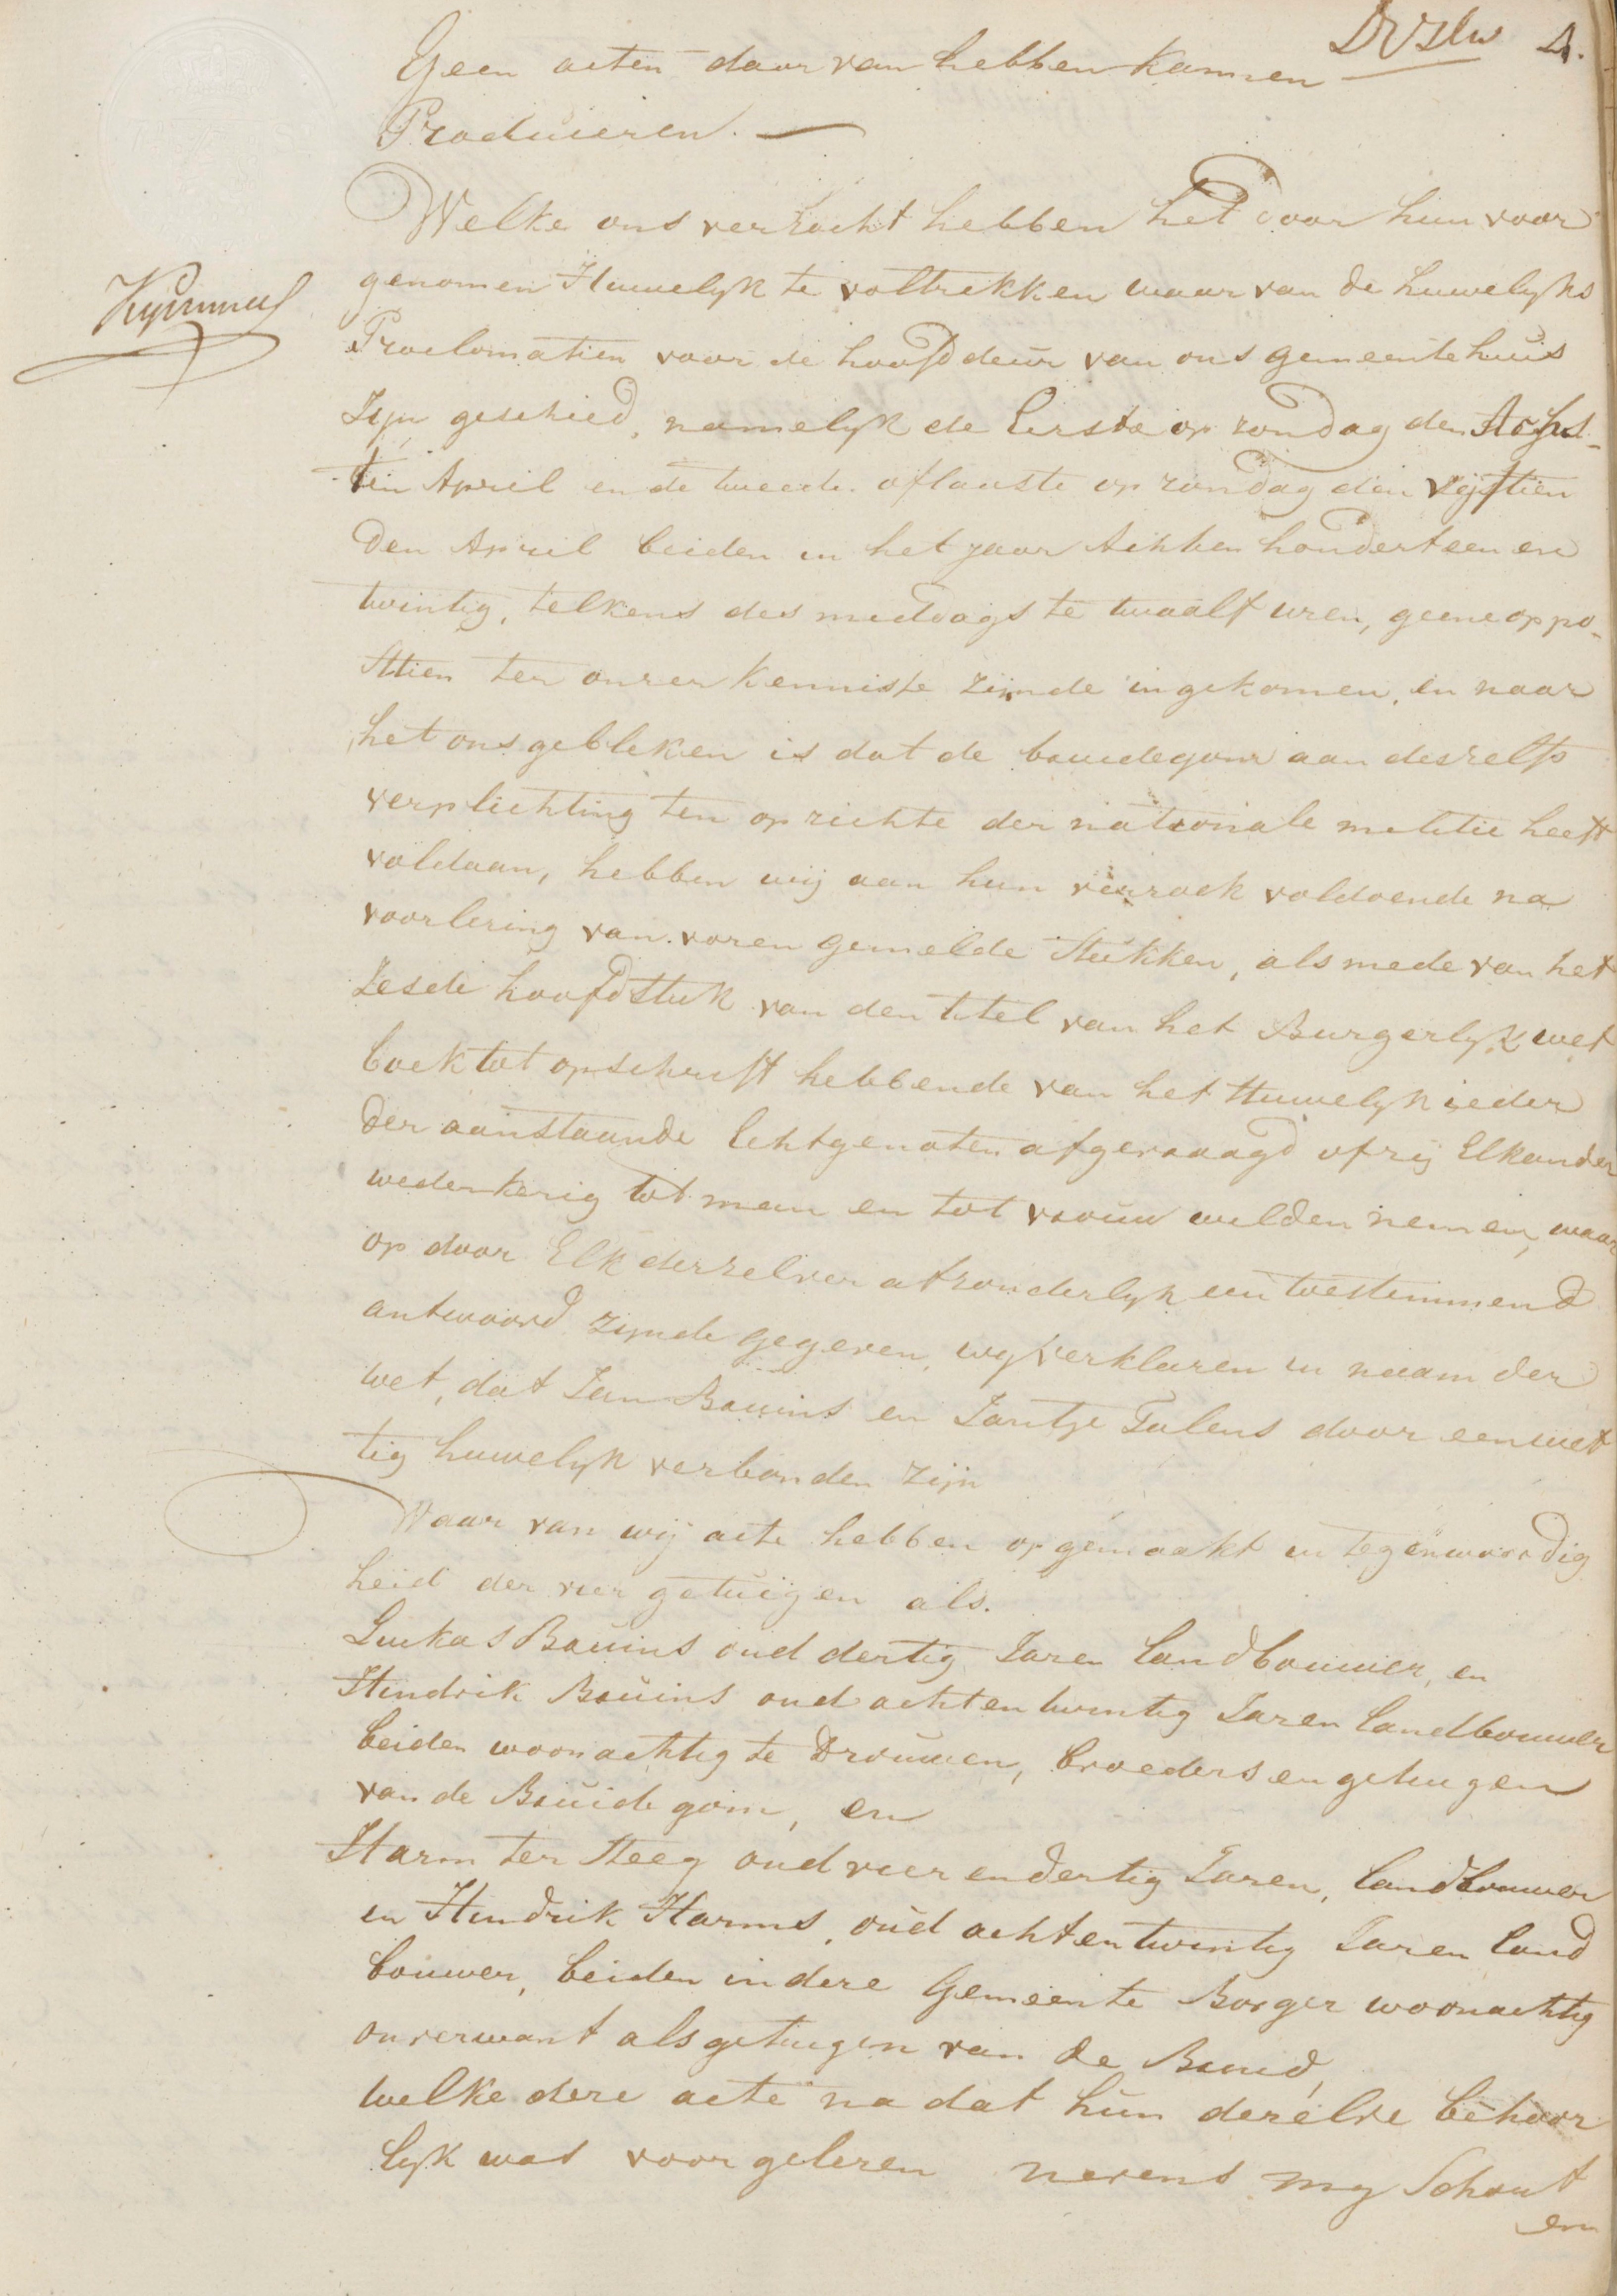 4.
Geen acten daar van hebben kunnen
Produceren.
Welke ons verzocht hebben het door hun voor
genomen Huwelyk te voltrekken waar van de huwelyks
Proclomatien voor de hoofddeur van ons gemeentehuis
Zyn geschied, namelyk de Eerste op zondag den Achs-
ten April en de tweede of laatste op zondag den vijftien
den April beiden in het jaar Achtien hondert een en
twintig, telkens des middags te twaalf uren, geene oppo-
sitien ter onzer kennisse zijnde ingekomen, en naar
het ons gebleken is dat de bruidegom aan deszelfs
verplichting ten opzichte der nationale melitie heeft
voldaan, hebben wij aan hun verzoek voldoende na
voorlezing van voren gemelde Stukken, als mede van het
Zesde hoofdstuk van den titel van het Burgerlyk wet
boek tot opschrift hebbende van het Huwelyk ieder
der aanstaande Echtgenoten afgevraagd of zij Elkander
wederkerig tot man en tot vrouw wilden nemen, waar
op door Elk derzelver afzonderlyk een toestemmend
antwoord zijnde gegeven, wy verklaren in naam der
wet, dat Jan Bruins en Jantje Talens door een wet
tig huwelyk verbonden zijn
Waar van wij acte hebben opgemaakt in tegenwoordig
heid der vier getuigen als.
Lukas Bruins oud dertig Jaren landbouwer, en
Hindrik Bruins oud acht en twintig Jaren landbouwer
beiden woonachtig te Drouwen, broeders en getuigen
van de Bruidegom, en
Harm ter Steeg oud vier en dertig Jaren, landbouwer
en Hindrik Harms, oud acht en twintig Jaren land
bouwer, beiden in deze Gemeente Borger woonachtig
onverwant als getuigen van de Bruid,
welke deze acte na dat hun dezelve behoor
lyk was voorgelezen nevens my Schout
en